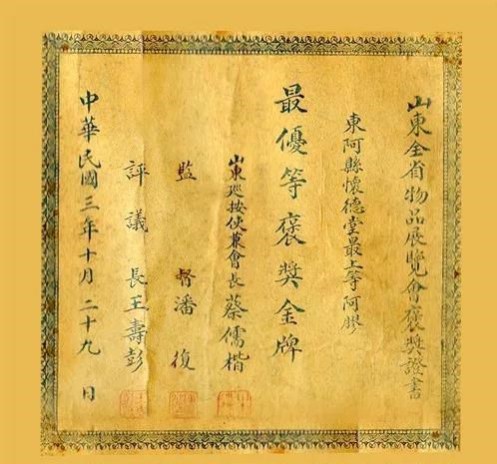 山東全省物品展覽會褒獎證書
東阿縣懷德堂最上等阿膠
最優等褒獎金牌
山東巡按使兼會長蔡儒楷
監督潘復
評議長王壽彭
中華民國三年十月二十九日